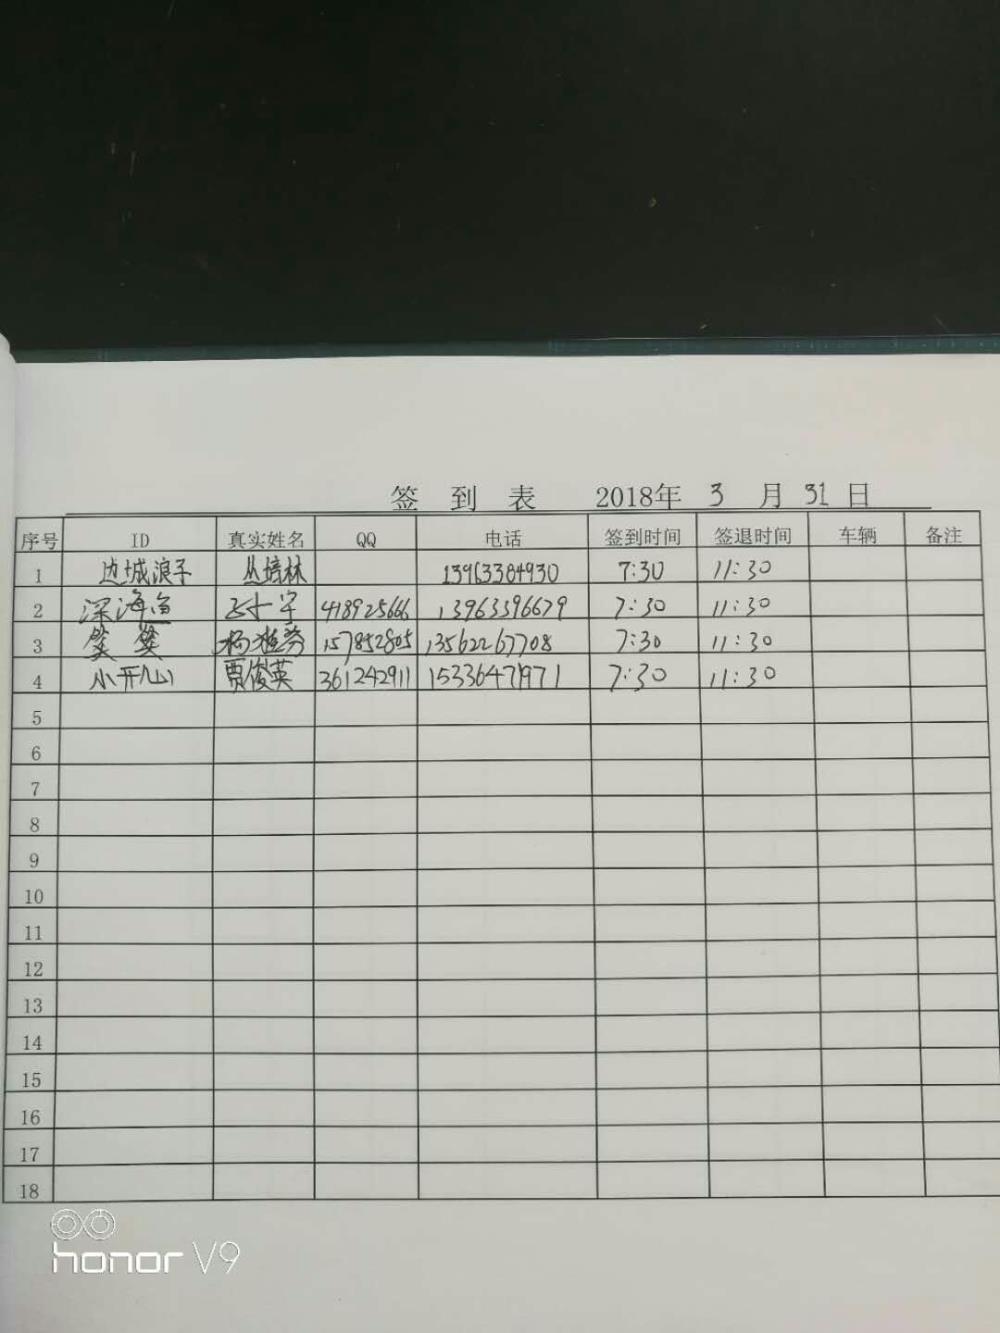 签 到 表 2018年 3 月 31 日
序号 ID 真实姓名 QQ 电话 签到时间 签退时间 车辆 备注
1 边城浪子 丛培林 13963384930 7:30 11:30
2 深海鱼 418925666 13963396679 7:30 11:30
3 笑笑 157852805 13562267708 7:30 11:30
4 小开心 贾俊英 361242911 15336471971 7:30 11:30
5
6
7
8
9
10
11
12
13
14
15
16
17
18
honor V9